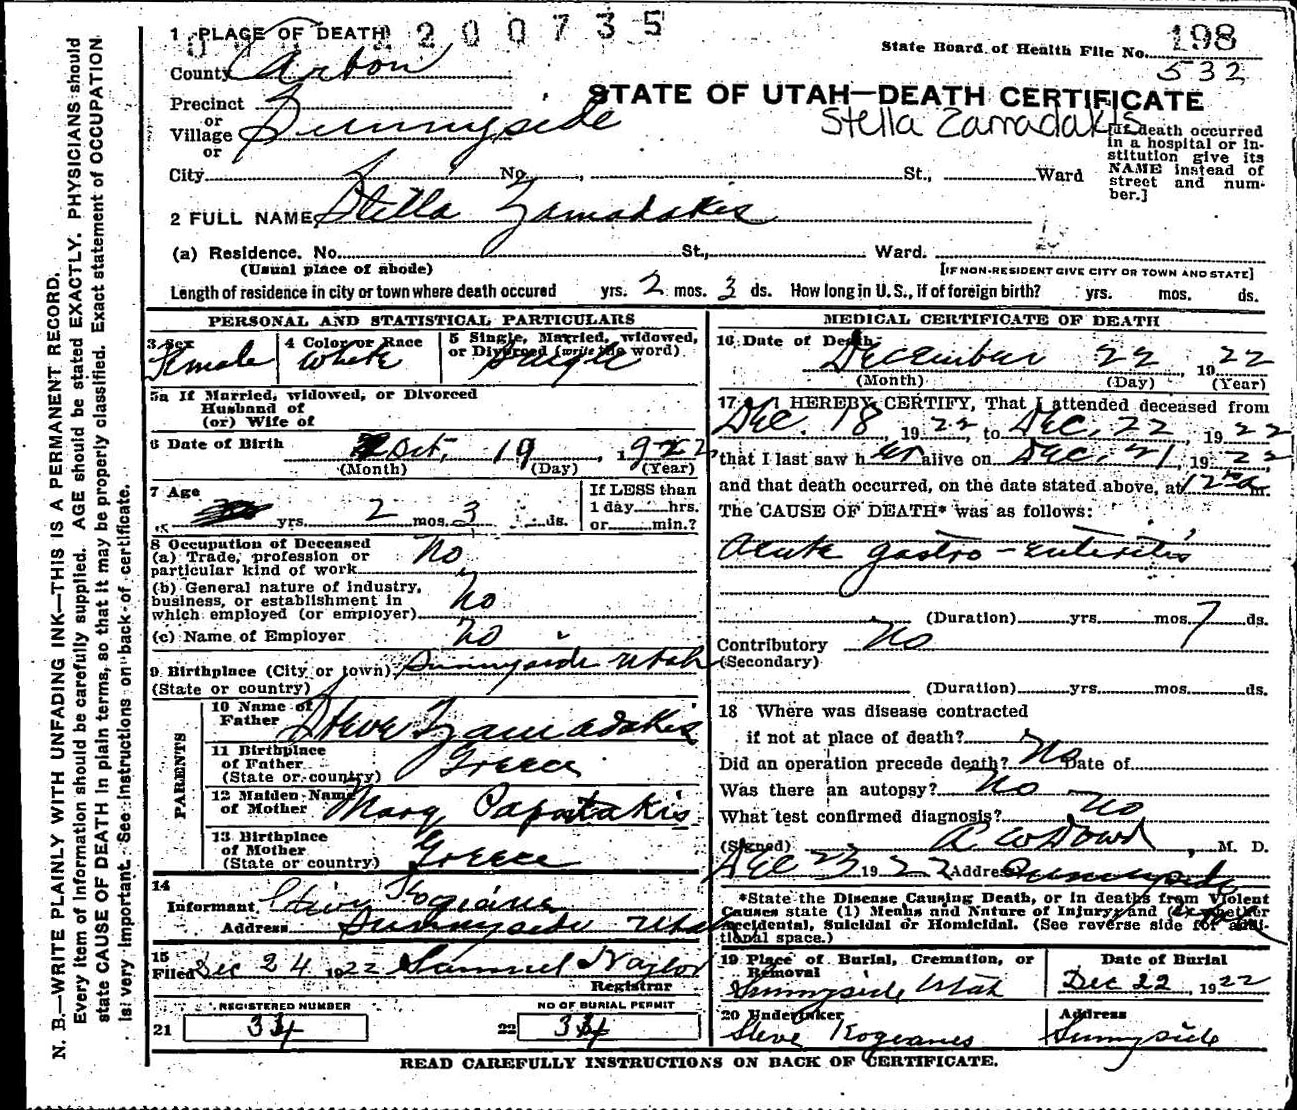 1 PLACE OF DEATH 2200735
State Board of Health File No. 198
532
County Carbon
STATE OF UTAH—DEATH CERTIFICATE
Stella Zamadakis
Precinct
or
Village Sunnyside
or
City No. , St., Ward
[If death occurred
in a hospital or in-
stitution give its
NAME instead of
street and num-
ber.]
2 FULL NAME Stella Zamadakis
(a) Residence. No. St., Ward.
(Usual place of abode) [IF NON-RESIDENT GIVE CITY OR TOWN AND STATE]
Length of residence in city or town where death occured yrs. 2 mos. 3 ds. How long in U. S., if of foreign birth? yrs. mos. ds.
PERSONAL AND STATISTICAL PARTICULARS
3 Sex 4 Color or Race 5 Single, Married, widowed,
or Divorced (write the word)
Female White Single
5a If Married, widowed, or Divorced
Husband of
(or) Wife of
6 Date of Birth Oct. 19, 1922
(Month) (Day) (Year)
7 Age
yrs. 2 mos. 3 ds.
If LESS than
1 day hrs.
or min.?
8 Occupation of Deceased
(a) Trade, profession or
particular kind of work No
(b) General nature of industry,
business, or establishment in
which employed (or employer) No
(c) Name of Employer No
9 Birthplace (City or town) Sunnyside Utah
(State or country)
PARENTS
10 Name of
Father Steve Zamadakis
11 Birthplace
of Father
(State or country) Greece
12 Maiden Name
of Mother Mary Papatakis
13 Birthplace
of Mother
(State or country) Greece
14
Informant
Address Sunnyside Utah
15
Filed Dec 24 1922 Samuel Naylor
Registrar
REGISTERED NUMBER NO OF BURIAL PERMIT
21 34 22 34
MEDICAL CERTIFICATE OF DEATH
16 Date of Death
December 22 1922
(Month) (Day) (Year)
17 I HEREBY CERTIFY, That I attended deceased from
Dec. 18, 1922, to Dec. 22, 1922
that I last saw her alive on Dec. 21, 1922
and that death occurred, on the date stated above, at 12 m.
The CAUSE OF DEATH* was as follows:
Acute gastro-enteritis
(Duration) yrs. mos. 7 ds.
Contributory No
(Secondary)
(Duration) yrs. mos. ds.
18 Where was disease contracted
if not at place of death?
Did an operation precede death? No Date of
Was there an autopsy? No
What test confirmed diagnosis? No
(Signed) R W Dowd, M. D.
Dec 23 1922 Address Sunnyside
*State the Disease Causing Death, or in deaths from Violent
Causes state (1) Means and Nature of Injury; and (2) whether
Accidental, Suicidal or Homicidal. (See reverse side for addi-
tional space.)
19 Place of Burial, Cremation, or
Removal
Sunnyside Utah
Date of Burial
Dec 22, 1922
20 Undertaker
Steve Kogeanes
Address
Sunnyside
READ CAREFULLY INSTRUCTIONS ON BACK OF CERTIFICATE.
N. B.—WRITE PLAINLY WITH UNFADING INK—THIS IS A PERMANENT RECORD.
Every item of information should be carefully supplied. AGE should be stated EXACTLY. PHYSICIANS should
state CAUSE OF DEATH in plain terms, so that it may be properly classified. Exact statement of OCCUPATION
is very important. See instructions on back of certificate.